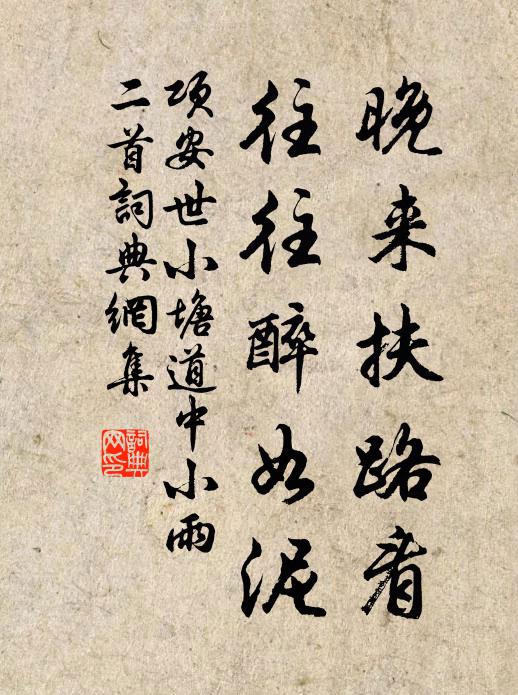 晚来扶路者
往往醉如泥
项安世小塘道中小雨
二首詞典網集
詞典网印